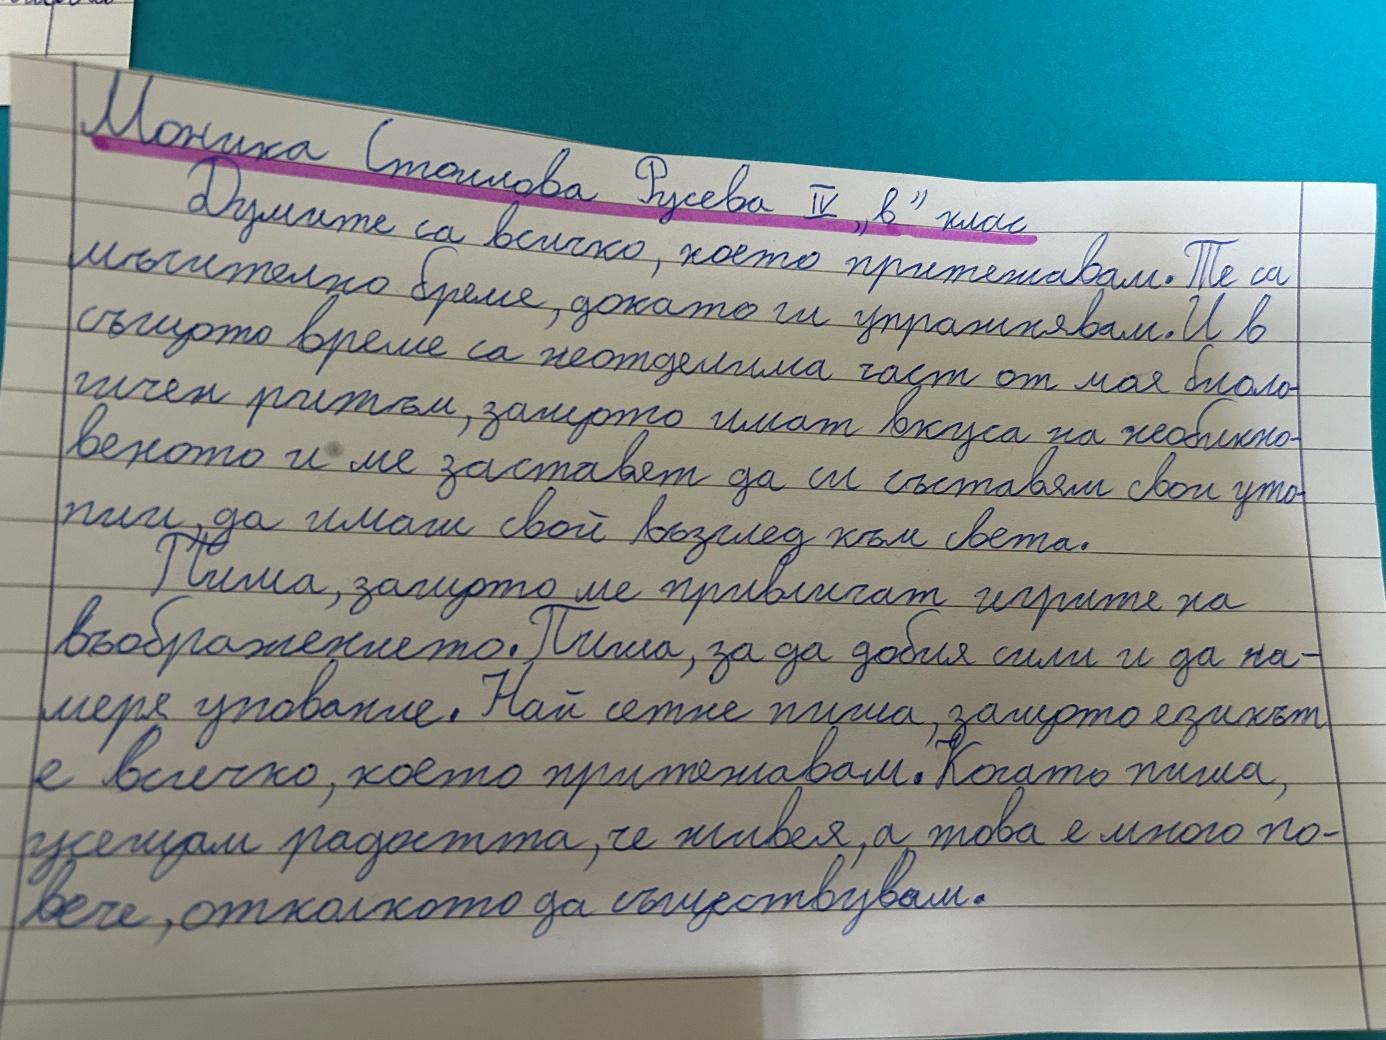 Моника Стоилова Русева IV „в” клас
Думите са всичко, което притежавам. Те са
мъчително бреме, докато ги упражнявам. И в
същото време са неотделима част от моя биоло-
гичен ритъм, защото имат вкуса на необикно-
веното и ме заставят да си съставям свои уто-
пии, да имаш свой възглед към света.
Пиша, защото ме привличат игрите на
въображението. Пиша, за да добия сили и да на-
меря упование. Най сетне пиша, защото езикът
е всичко, което притежавам. Когато пиша,
усещам радостта, че живея, а това е много по-
вече, отколкото да съществувам.